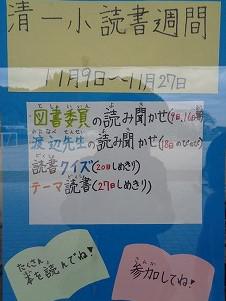 清一小読書週間
11月9日〜11月27日
図書委員の読み聞かせ(9日、16日)
渡辺先生の読み聞かせ(18日のびのび)
読書クイズ(20日しめきり)
テーマ読書(27日しめきり)
たくさん
本を読んでね♪
参加してね!